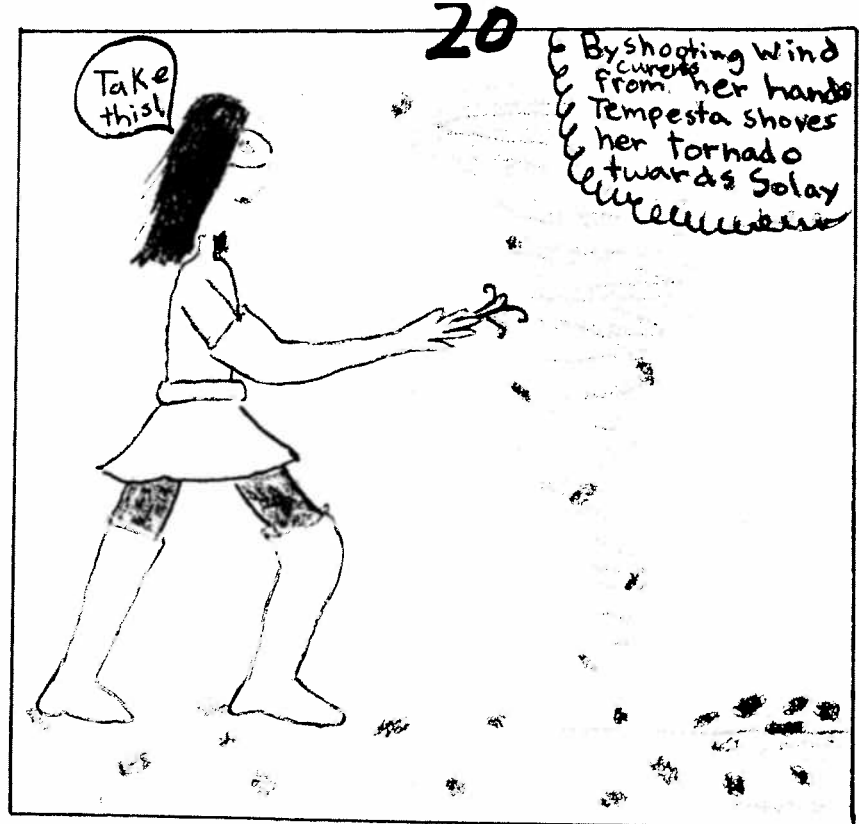 20
Take
this!
By shooting wind
curents
from her hands
Tempesta shoves
her tornado
twards Solay